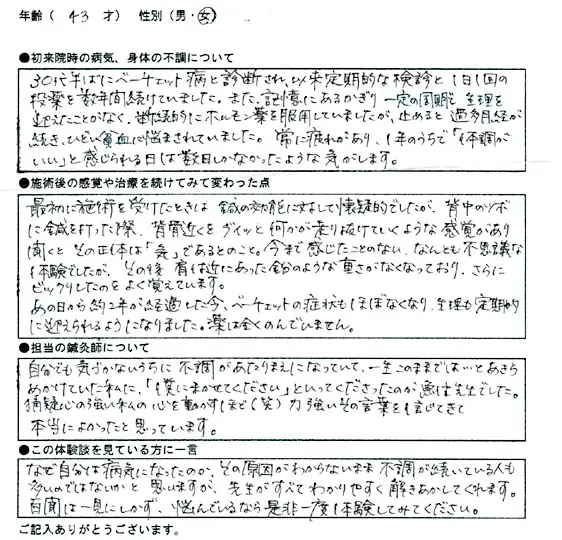 年齢( 43 才) 性別(男・女)
●初来院時の病気、身体の不調について
30代半ばにベーチェット病と診断され、以来定期的な検診と1日1回の
投薬を数年間続けていました。また、記憶にあるかぎり一定の周期で生理を
迎えたことがなく、断続的にホルモン薬を服用していましたが、止めると過多月経が
続き、ひどい貧血に悩まされていました。常に疲れがあり、1年のうちで「体調が
いい」と感じられる日は数日しかなかったような気がします。
●施術後の感覚や治療を続けてみて変わった点
最初に施術を受けたときは鍼の効能に対して懐疑的でしたが、背中のツボ
に鍼を打った際、背骨近くをグイッと何かが走り抜けていくような感覚があり
聞くとその正体は「気」であるとのこと。今まで感じたことのない、なんとも不思議な
体験でしたが、その後肩付近にあった鉛のような重さがなくなっており、さらに
ビックリしたのをよく覚えています。
あの日から約2年が経過した今、ベーチェットの症状もほぼなくなり、生理も定期的
に迎えられるようになりました。薬は全くのんでいません。
●担当の鍼灸師について
自分でも気づかないうちに不調があたりまえになっていて、一生このままでは…とあきら
めかけていた私に、「僕にまかせてください」といってくださったのが 先生でした。
猜疑心の強い私の心を動かすほど(笑)力強いその言葉を信じてきて
本当によかったと思っています。
●この体験談を見ている方に一言
なぜ自分は病気になったのか、その原因がわからないまま不調が続いている人も
多いのではないかと思いますが、先生がすべてわかりやすく解きあかしてくれます。
百聞は一見にしかず、悩んでいるなら是非一度体験してみてください。
ご記入ありがとうございます。